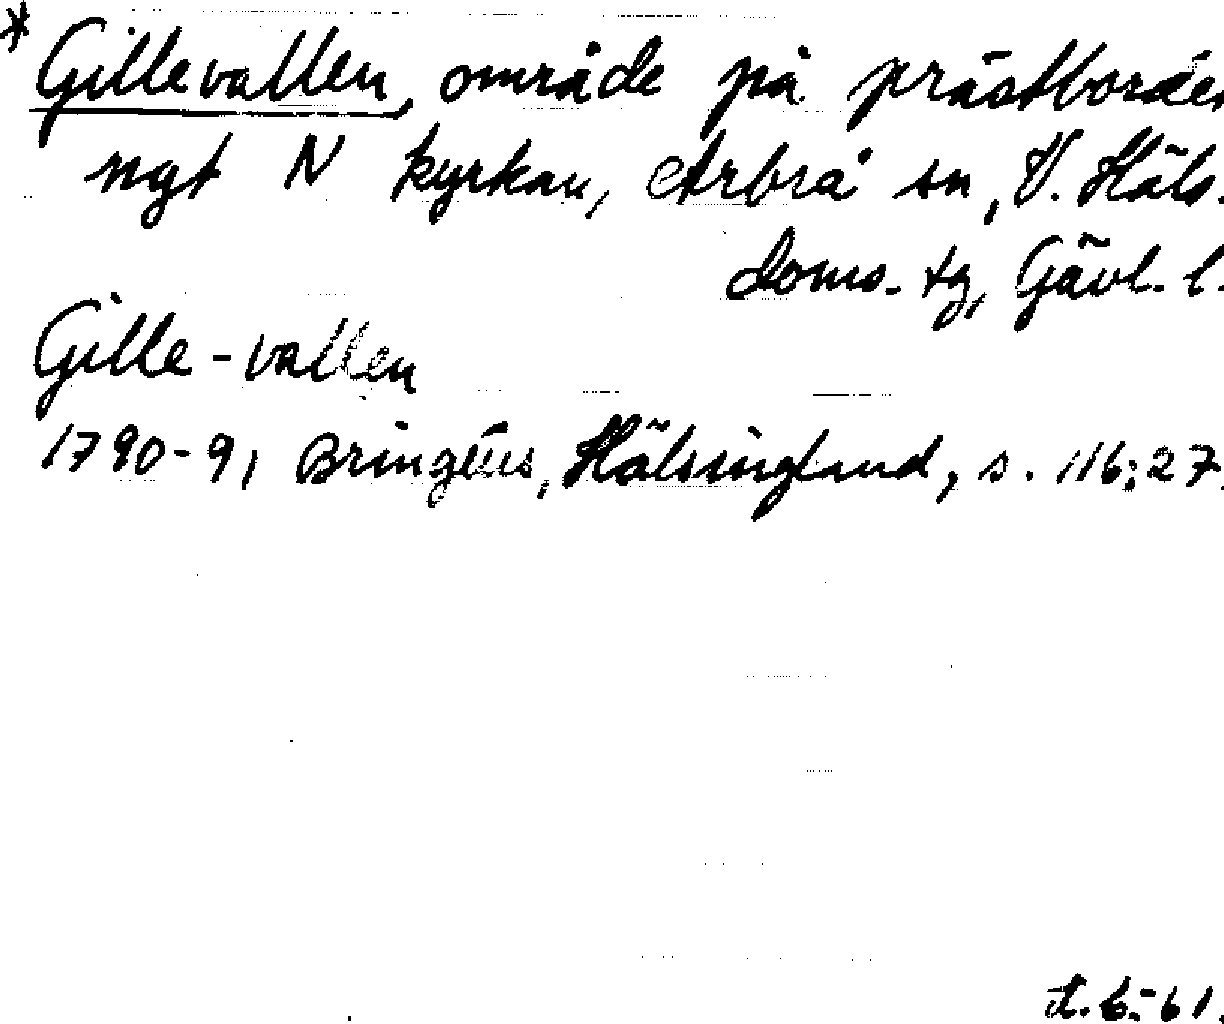 * Gillevallen, område på prästborden
ngt N kyrkan, Arbrå sn, V. Häls.
doms. tg, Gävl. l.
Gille-vallen
1790-91 Bringéus, Hälsingland, s. 116:27.